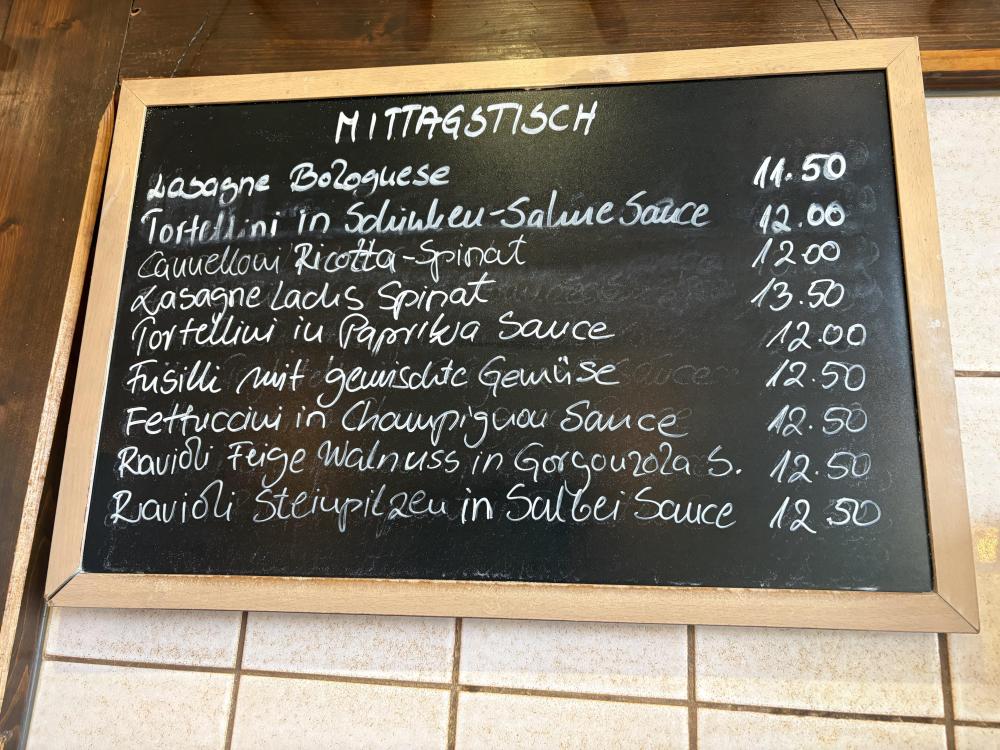 MITTAGSTISCH
Lasagne Bolognese 11.50
Tortellini in Schinken-Sahne Sauce 12.00
Cannelloni Ricotta-Spinat 12.00
Lasagne Lachs Spinat 13.50
Tortellini in Paprika Sauce 12.00
Fusilli mit gemischte Gemüse 12.50
Fettuccini in Champignon Sauce 12.50
Ravioli Feige Walnuss in Gorgonzola S. 12.50
Ravioli Steinpilzen in Salbei Sauce 12.50